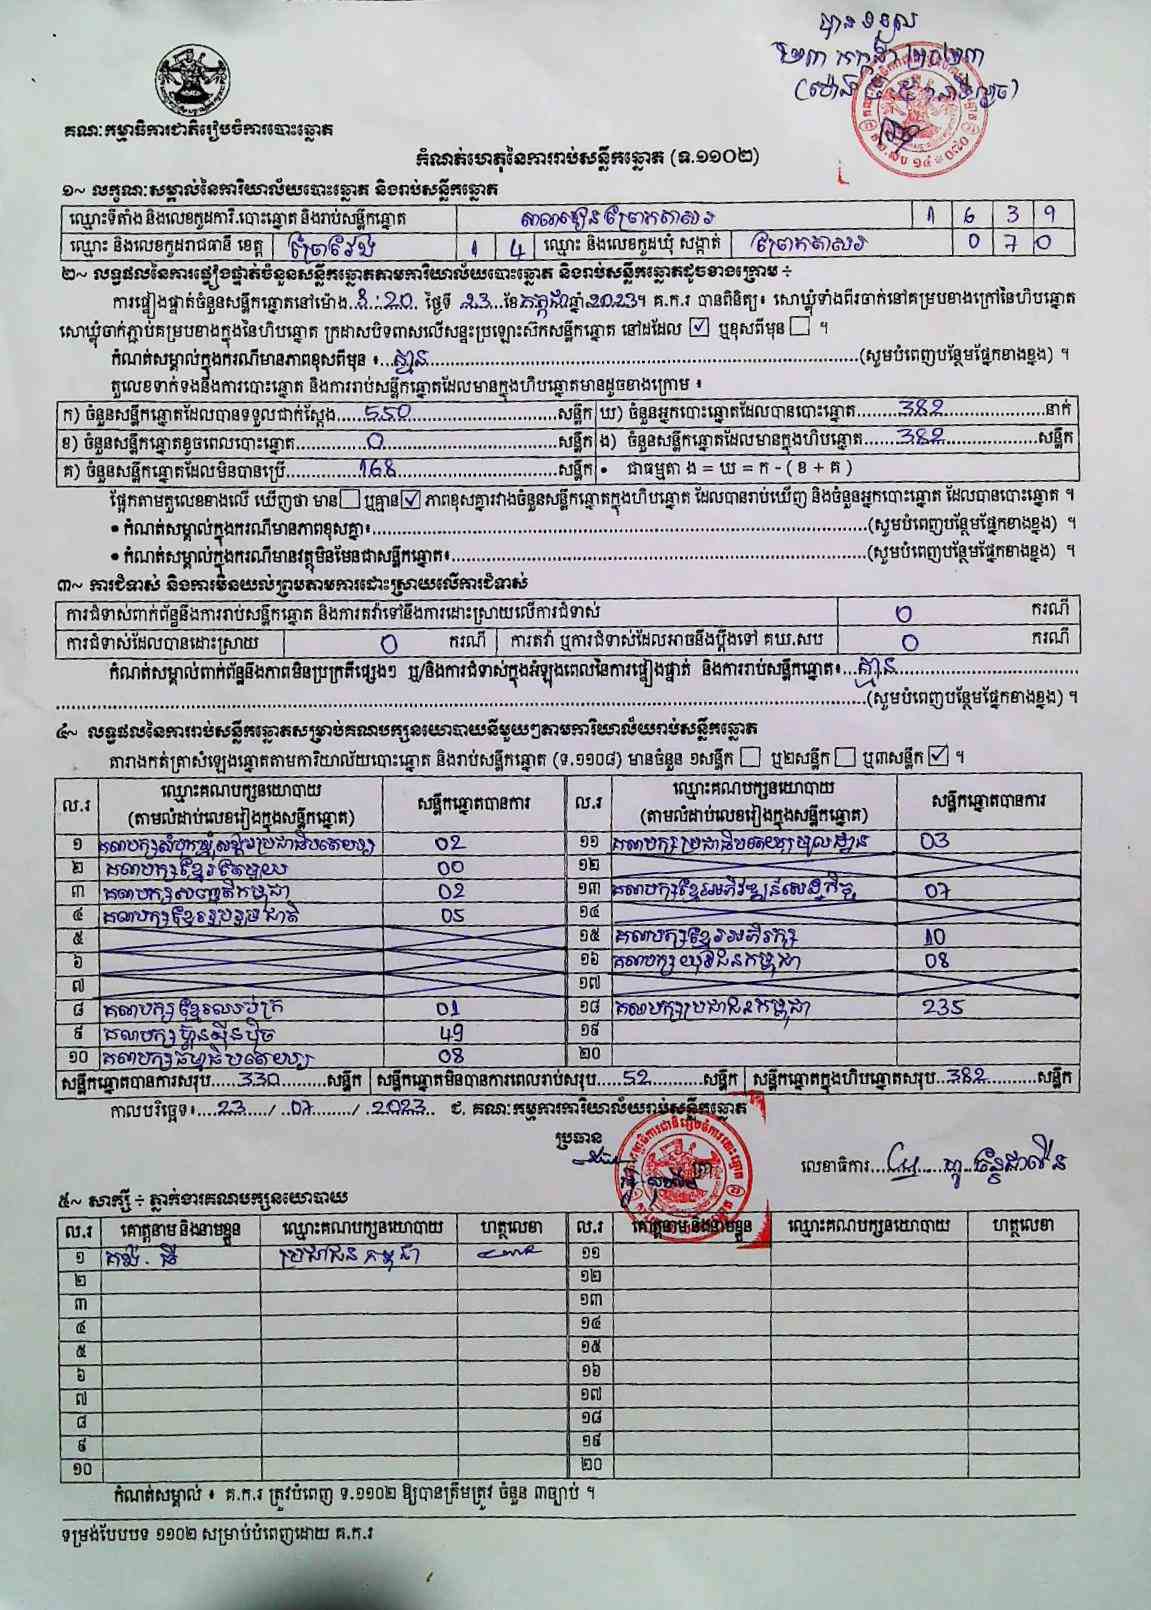 បានទទួល
២៣ កក្កដា ២០២៣
គណៈកម្មាធិការជាតិរៀបចំការបោះឆ្នោត
កំណត់ហេតុនៃការរាប់សន្លឹកឆ្នោត (ទ.១១០២)
១~ លក្ខណៈសម្គាល់នៃការិយាល័យបោះឆ្នោត និងរាប់សន្លឹកឆ្នោត
ឈ្មោះទីតាំង និងលេខកូដការិ.បោះឆ្នោត និងរាប់សន្លឹកឆ្នោត សាលារៀនព្រែកតាសរ 1 6 3 9
ឈ្មោះ និងលេខកូដរាជធានី ខេត្ត ព្រៃវែង 1 4 ឈ្មោះ និងលេខកូដឃុំ សង្កាត់ ព្រែកតាសរ 0 7 0
២~ លទ្ធផលនៃការផ្ទៀងផ្ទាត់ចំនួនសន្លឹកឆ្នោតតាមការិយាល័យបោះឆ្នោត និងរាប់សន្លឹកឆ្នោតដូចខាងក្រោម ÷
ការផ្ទៀងផ្ទាត់ចំនួនសន្លឹកឆ្នោតនៅម៉ោង 3:20 ថ្ងៃទី 23 ខែកក្កដាឆ្នាំ 2023។ គ.ក.រ បានពិនិត្យ៖ សោឃ្លុំទាំងពីរចាក់នៅគម្របខាងក្រៅនៃហិបឆ្នោត
សោឃ្លុំចាក់ភ្ជាប់គម្របខាងក្នុងនៃហិបឆ្នោត ក្រដាសបិទពាសលើសន្ទះប្រឡោះស៊កសន្លឹកឆ្នោត នៅដដែល ☑ ឬខុសពីមុន ☐ ។
កំណត់សម្គាល់ក្នុងករណីមានភាពខុសពីមុន ៖...គ្មាន...(សូមបំពេញបន្ថែមផ្នែកខាងខ្នង) ។
តួលេខទាក់ទងនឹងការបោះឆ្នោត និងការរាប់សន្លឹកឆ្នោតដែលមានក្នុងហិបឆ្នោតមានដូចខាងក្រោម ៖
ក) ចំនួនសន្លឹកឆ្នោតដែលបានទទួលជាក់ស្តែង...550...សន្លឹក ឃ) ចំនួនអ្នកបោះឆ្នោតដែលបានបោះឆ្នោត...382...នាក់
ខ) ចំនួនសន្លឹកឆ្នោតខូចពេលបោះឆ្នោត...0...សន្លឹក ង) ចំនួនសន្លឹកឆ្នោតដែលមានក្នុងហិបឆ្នោត...382...សន្លឹក
គ) ចំនួនសន្លឹកឆ្នោតដែលមិនបានប្រើ...168...សន្លឹក • ជាធម្មតា ង = ឃ = ក - ( ខ + គ )
ផ្អែកតាមតួលេខខាងលើ ឃើញថា មាន ☐ ឬគ្មាន ☑ ភាពខុសគ្នារវាងចំនួនសន្លឹកឆ្នោតក្នុងហិបឆ្នោត ដែលបានរាប់ឃើញ និងចំនួនអ្នកបោះឆ្នោត ដែលបានបោះឆ្នោត ។
• កំណត់សម្គាល់ក្នុងករណីមានភាពខុសគ្នា៖...(សូមបំពេញបន្ថែមផ្នែកខាងខ្នង) ។
• កំណត់សម្គាល់ក្នុងករណីមានវត្ថុមិនមែនជាសន្លឹកឆ្នោត៖...(សូមបំពេញបន្ថែមផ្នែកខាងខ្នង) ។
៣~ ការជំទាស់ និងការមិនយល់ព្រមតាមការដោះស្រាយលើការជំទាស់
ការជំទាស់ពាក់ព័ន្ធនឹងការរាប់សន្លឹកឆ្នោត និងការតវ៉ាទៅនឹងការដោះស្រាយលើការជំទាស់ 0 ករណី
ការជំទាស់ដែលបានដោះស្រាយ 0 ករណី ការតវ៉ា ឬការជំទាស់ដែលអាចនឹងប្តឹងទៅ គឃ.សប 0 ករណី
កំណត់សម្គាល់ពាក់ព័ន្ធនឹងភាពមិនប្រក្រតីផ្សេងៗ ឬ/និងការជំទាស់ក្នុងអំឡុងពេលនៃការផ្ទៀងផ្ទាត់ និងការរាប់សន្លឹកឆ្នោត៖...គ្មាន...
...(សូមបំពេញបន្ថែមផ្នែកខាងខ្នង) ។
៤~ លទ្ធផលនៃការរាប់សន្លឹកឆ្នោតសម្រាប់គណបក្សនយោបាយនីមួយៗតាមការិយាល័យរាប់សន្លឹកឆ្នោត
តារាងកត់ត្រាសំឡេងឆ្នោតតាមការិយាល័យបោះឆ្នោត និងរាប់សន្លឹកឆ្នោត (ទ.១១០៨) មានចំនួន ១សន្លឹក ☐ ឬ២សន្លឹក ☐ ឬ៣សន្លឹក ☑ ។
ល.រ ឈ្មោះគណបក្សនយោបាយ (តាមលំដាប់លេខរៀងក្នុងសន្លឹកឆ្នោត) សន្លឹកឆ្នោតបានការ ល.រ ឈ្មោះគណបក្សនយោបាយ (តាមលំដាប់លេខរៀងក្នុងសន្លឹកឆ្នោត) សន្លឹកឆ្នោតបានការ
១ គណបក្សសំបុកឃ្មុំសង្គមប្រជាធិបតេយ្យ 02 ១១ គណបក្សប្រជាធិបតេយ្យមូលដ្ឋាន 03
២ គណបក្សខ្មែរតែមួយ 00 ១២
៣ គណបក្សសញ្ជាតិកម្ពុជា 02 ១៣ គណបក្សខ្មែរអភិវឌ្ឍន៍សេដ្ឋកិច្ច 07
៤ គណបក្សខ្មែររួបរួមជាតិ 05 ១៤
៥ ១៥ គណបក្សខ្មែរអភិរក្ស 10
៦ ១៦ គណបក្សយុវជនកម្ពុជា 08
៧ ១៧
៨ គណបក្សខ្មែរឈប់ក្រ 01 ១៨ គណបក្សប្រជាជនកម្ពុជា 235
៩ គណបក្សហ្វ៊ុនស៊ីនប៉ិច 49 ១៩
១០ គណបក្សធម្មាធិបតេយ្យ 08 ២០
សន្លឹកឆ្នោតបានការសរុប...330...សន្លឹក សន្លឹកឆ្នោតមិនបានការពេលរាប់សរុប...52...សន្លឹក សន្លឹកឆ្នោតក្នុងហិបឆ្នោតសរុប...382...សន្លឹក
កាលបរិច្ឆេទ៖...23.../...07.../...2023.. ជ. គណៈកម្មការការិយាល័យរាប់សន្លឹកឆ្នោត
ប្រធាន
លេខាធិការ
៥~ សាក្សី ÷ ភ្នាក់ងារគណបក្សនយោបាយ
ល.រ គោត្តនាម និងនាមខ្លួន ឈ្មោះគណបក្សនយោបាយ ហត្ថលេខា ល.រ គោត្តនាម និងនាមខ្លួន ឈ្មោះគណបក្សនយោបាយ ហត្ថលេខា
១ ប្រជាជនកម្ពុជា ១១
២ ១២
៣ ១៣
៤ ១៤
៥ ១៥
៦ ១៦
៧ ១៧
៨ ១៨
៩ ១៩
១០ ២០
កំណត់សម្គាល់ ៖ គ.ក.រ ត្រូវបំពេញ ទ.១១០២ ឱ្យបានត្រឹមត្រូវ ចំនួន ៣ច្បាប់ ។
ទម្រង់បែបបទ ១១០២ សម្រាប់បំពេញដោយ គ.ក.រ